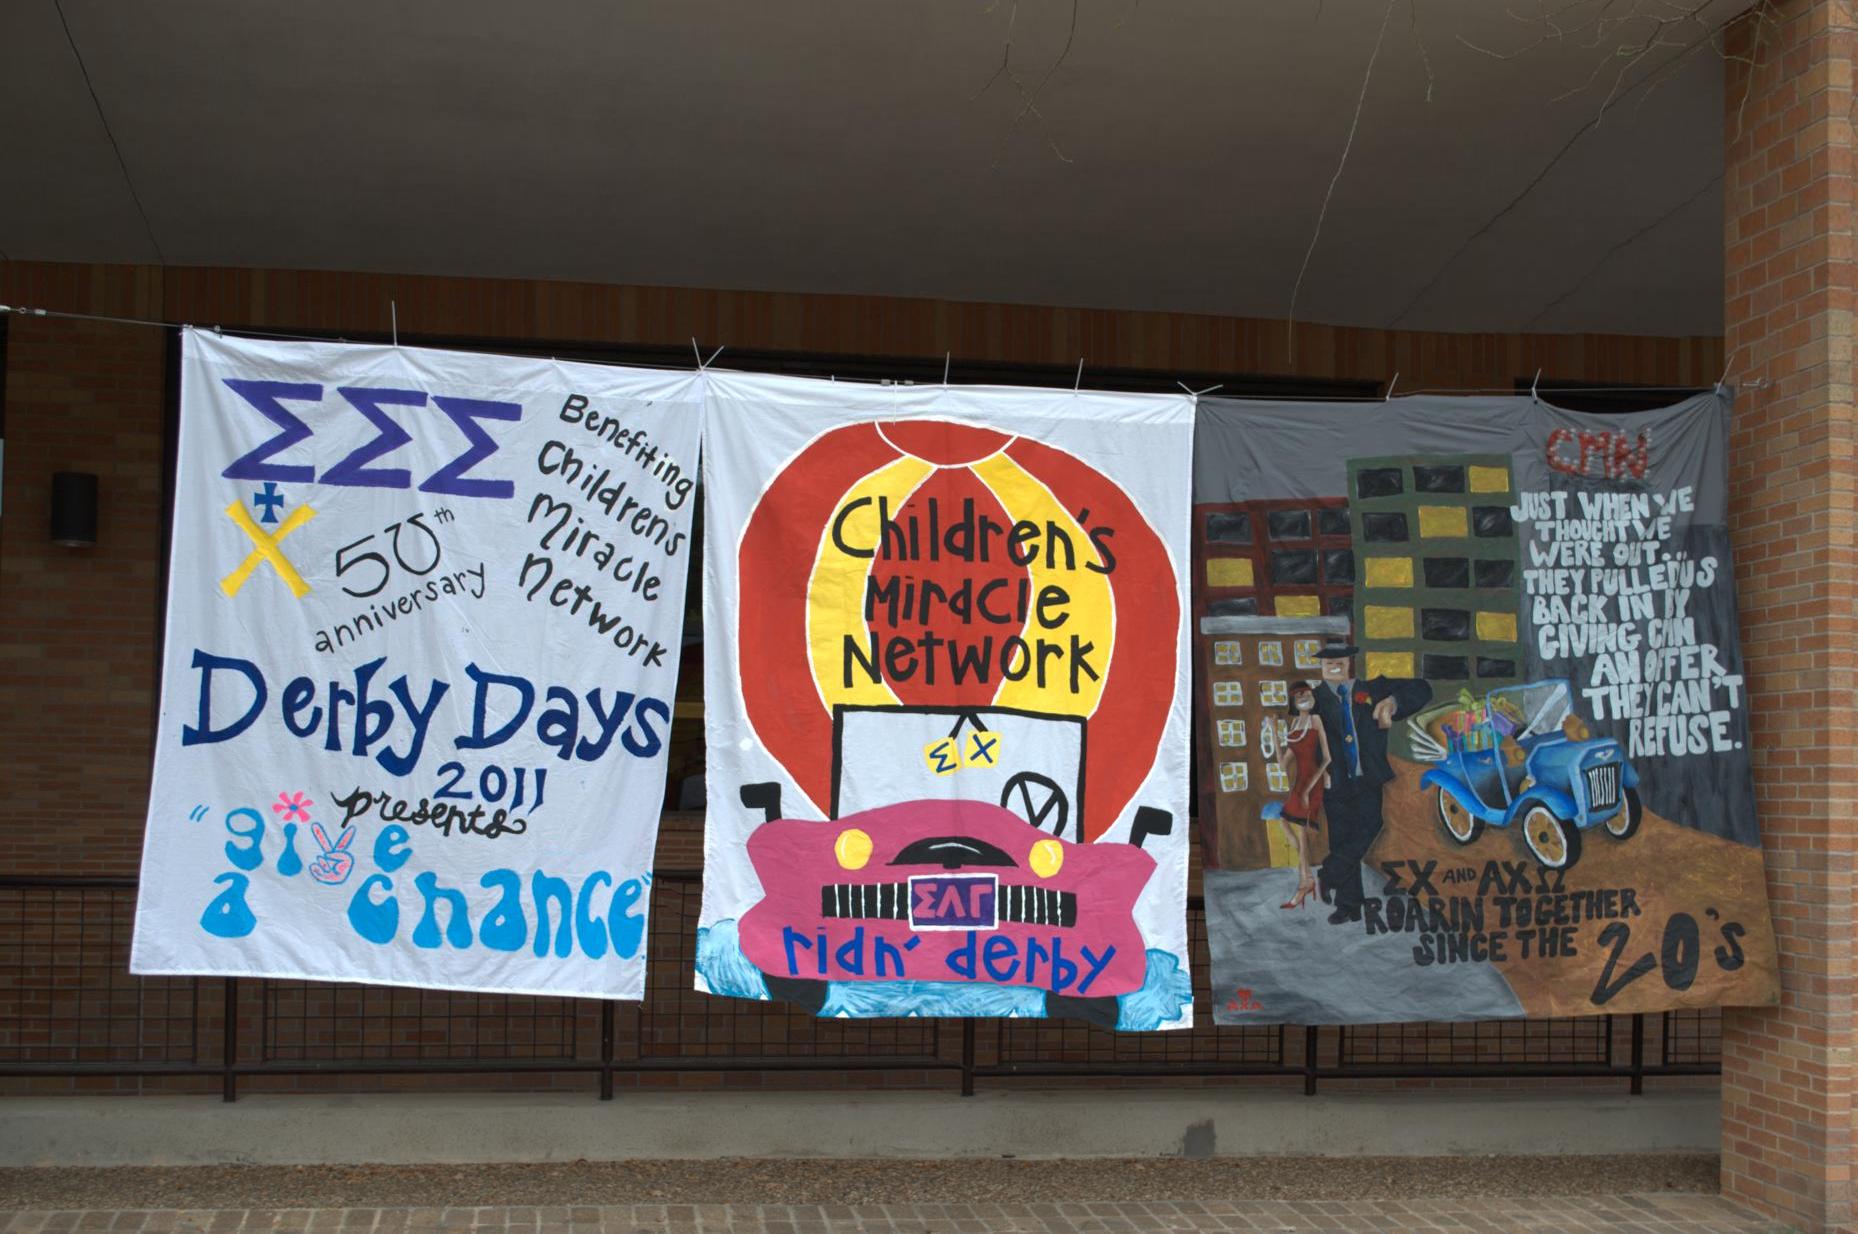 ΣΣΣ
Benefiting
Children's
Miracle
Network
X
50th
anniversary
Derby Days
2011
presents
"give
a chance"
Children's
Miracle
Network
Σ X
ΣΛΓ
ridn' derby
CMN
JUST WHEN WE
THOUGHT WE
WERE OUT...
THEY PULLED US
BACK IN BY
GIVING CMN
AN OFFER
THEY CAN'T
REFUSE.
ΣX AND AXΩ
ROARIN TOGETHER
SINCE THE 20's
AXΩ